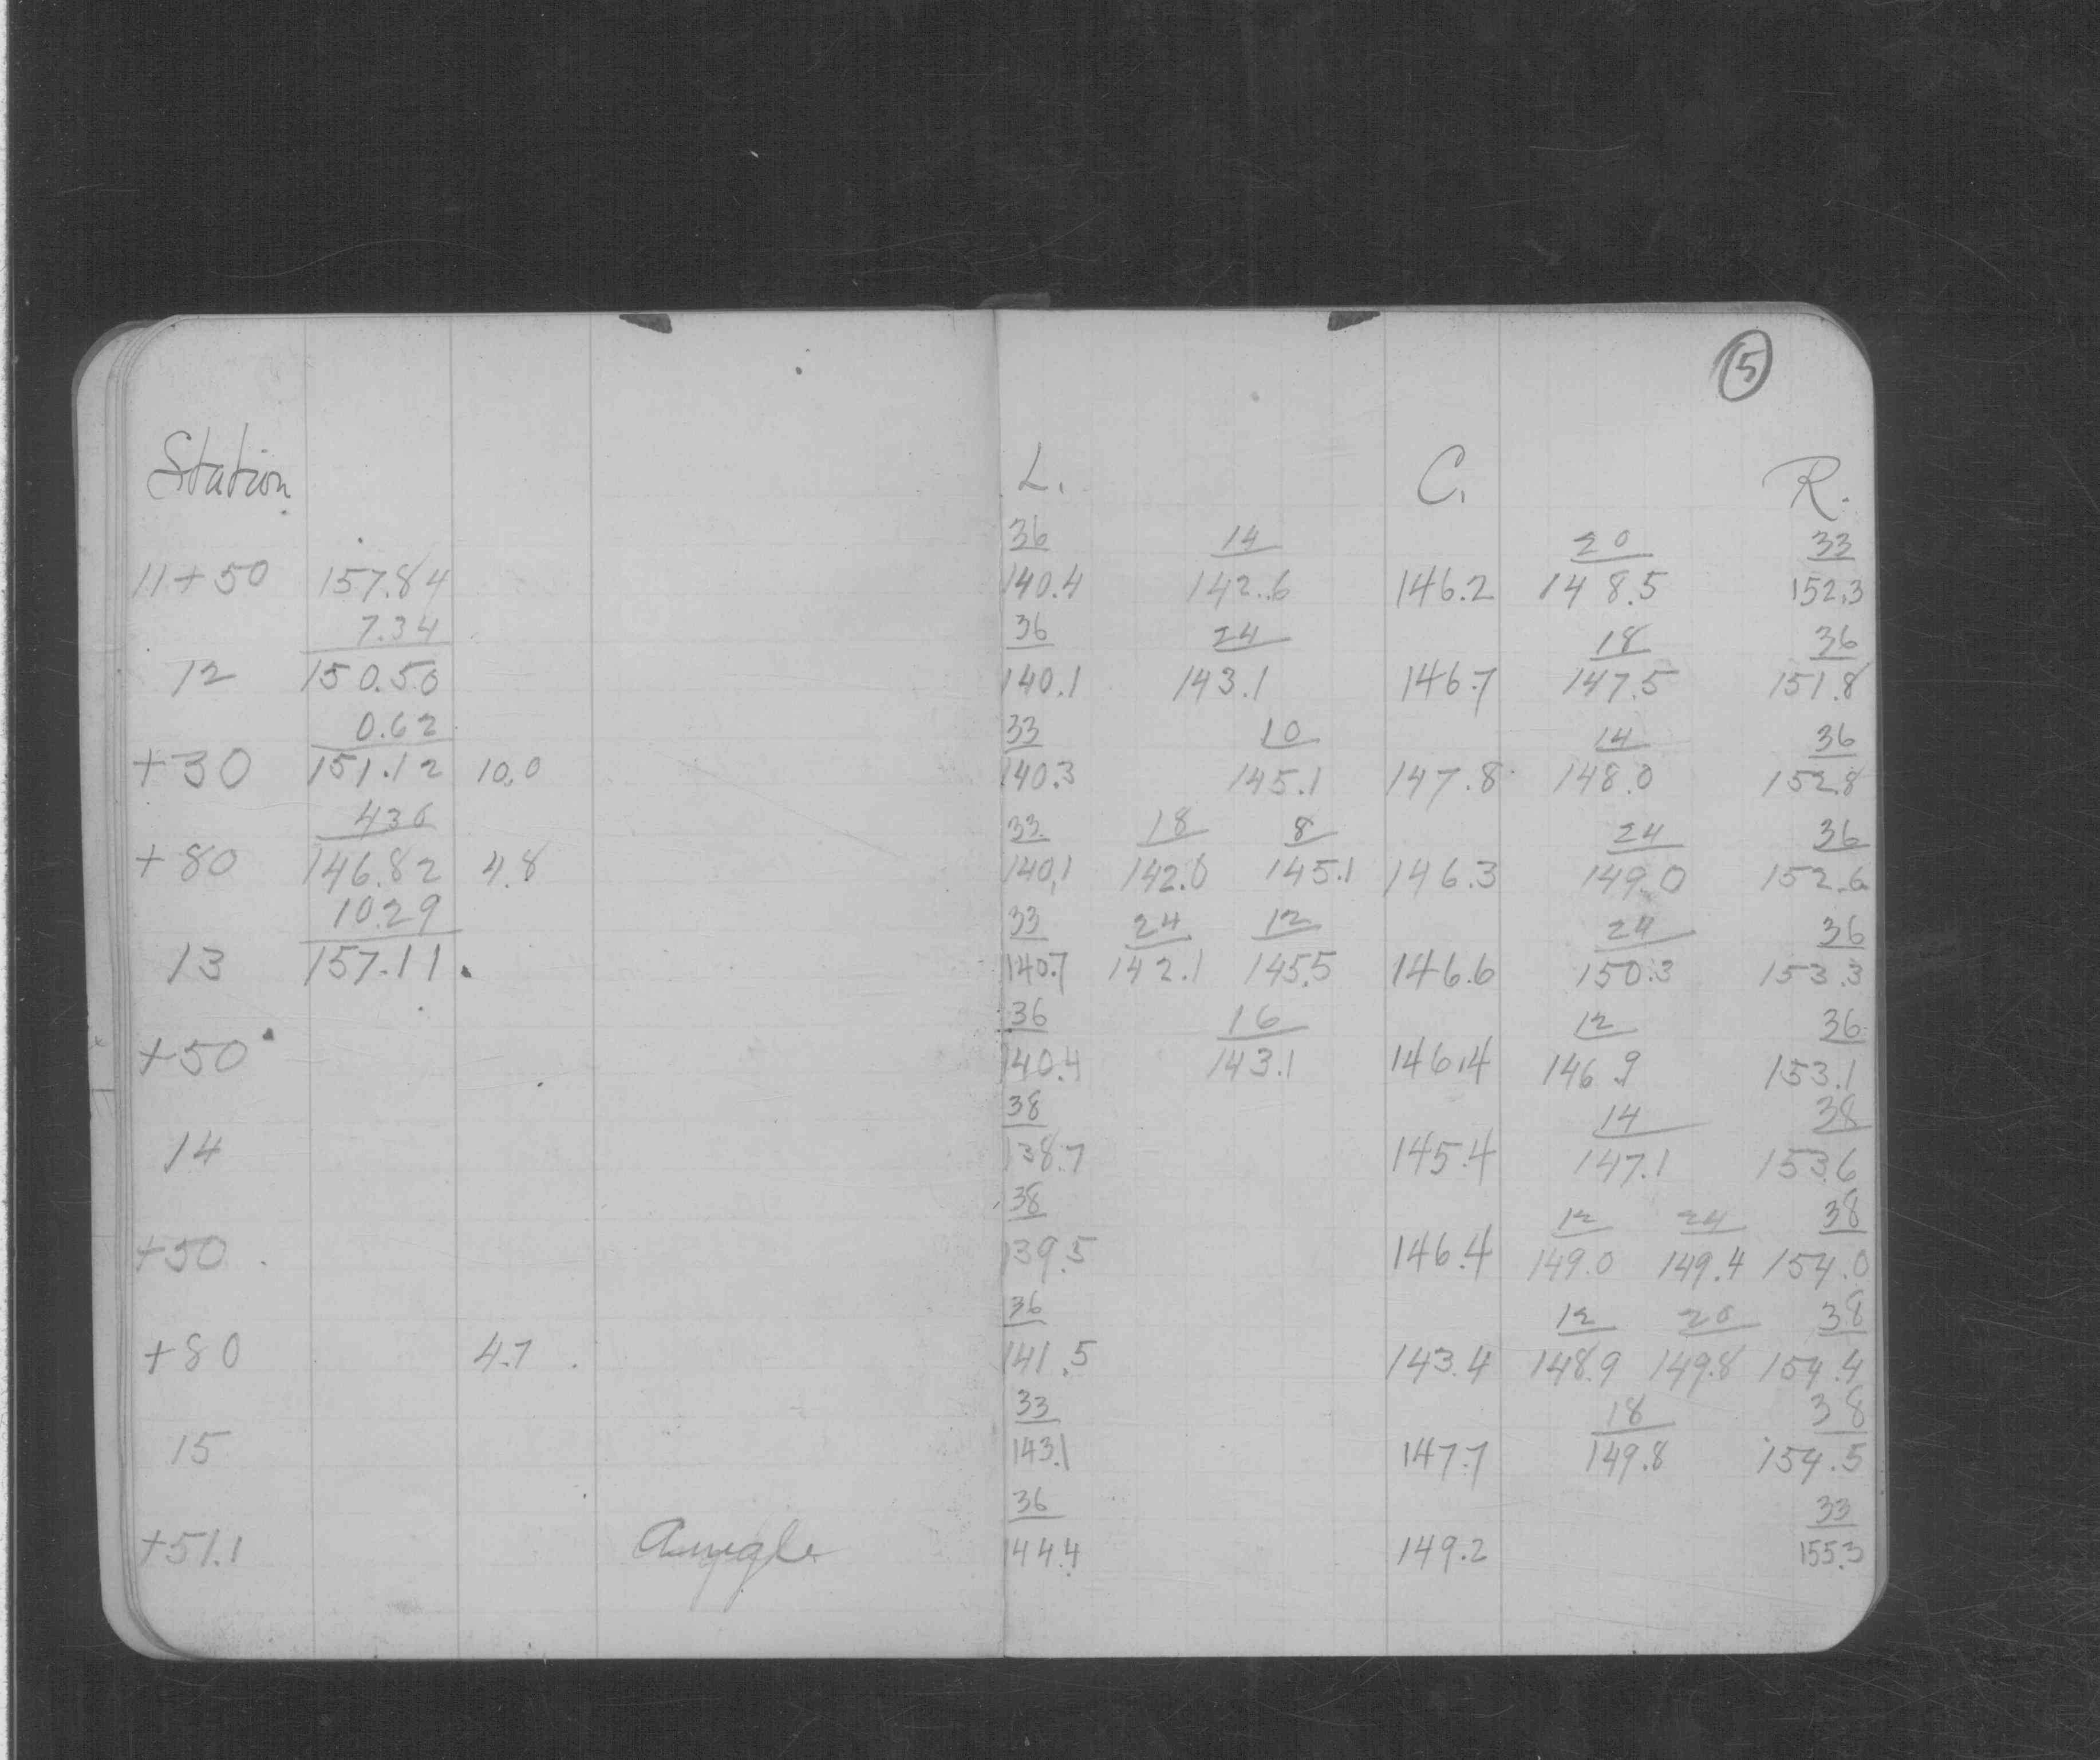 15
Station L. C. R.
36 14 20 33
11+50 157.84 140.4 142.6 146.2 148.5 152.3
7.34 36 24 18 36
12 150.50 140.1 143.1 146.7 147.5 151.8
0.62 33 10 14 36
+30 151.12 10.0 140.3 145.1 147.8 148.0 152.8
430 33 18 8 24 36
+80 146.82 4.8 140.1 142.0 145.1 146.3 149.0 152.6
10.29 33 24 12 24 36
13 157.11 140.7 142.1 145.5 146.6 150.3 153.3
36 16 12 36
+50 140.4 143.1 146.4 146.9 153.1
38 14 38
14 138.7 145.4 147.1 153.6
38 12 24 38
+50 139.5 146.4 149.0 149.4 154.0
36 12 20 38
+80 4.7 141.5 143.4 148.9 149.8 154.4
33 18 38
15 143.1 147.7 149.8 154.5
36 33
+51.1 Angle 144.4 149.2 155.3